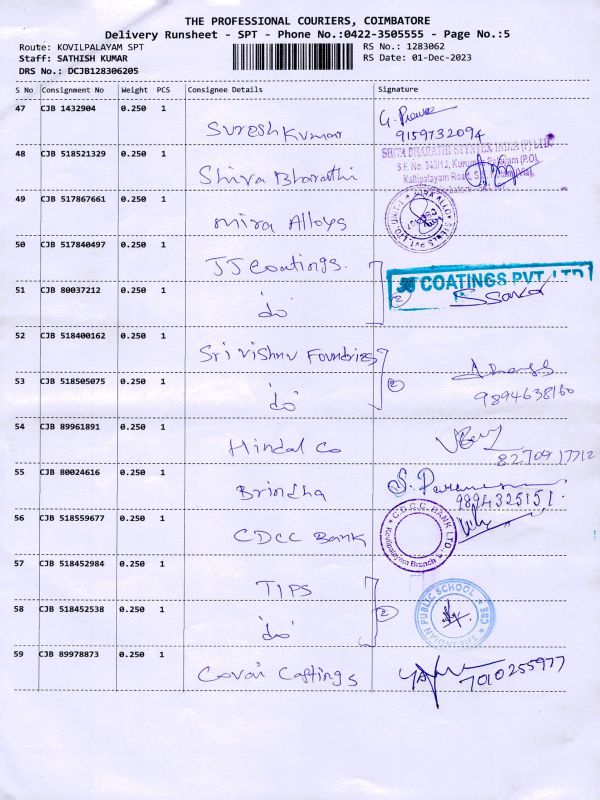 THE PROFESSIONAL COURIERS, COIMBATORE
Delivery Runsheet - SPT - Phone No.:0422-3505555 - Page No.:5
Route: KOVILPALAYAM SPT
RS No.: 1283062
Staff: SATHISH KUMAR
RS Date: 01-Dec-2023
DRS No.: DCJB128306205
S No Consignment No Weight PCS Consignee Details Signature
47 CJB 1432904 0.250 1 Suresh Kumar
9159732094
48 CJB 518521329 0.250 1 Shiva Bharathi
49 CJB 517867661 0.250 1 Mira Alloys
50 CJB 517840497 0.250 1 JJ Coatings.
JJ COATINGS PVT LTD
51 CJB 80037212 0.250 1 do 2
52 CJB 518400162 0.250 1 Sri Vishnu Foundries
53 CJB 518505075 0.250 1 do 2
9894638160
54 CJB 89961891 0.250 1 Hindal Co
8270917712
55 CJB 80024616 0.250 1 Brindha
9894325151.
56 CJB 518559677 0.250 1 CDCC Bank
C.D.C.C. BANK LTD.,
Kovilpalayam Branch
57 CJB 518452984 0.250 1 TIPS
58 CJB 518452538 0.250 1 do 2
THE INDIAN PUBLIC SCHOOL
CBE
59 CJB 89978873 0.250 1 Covai Castings
7010255977